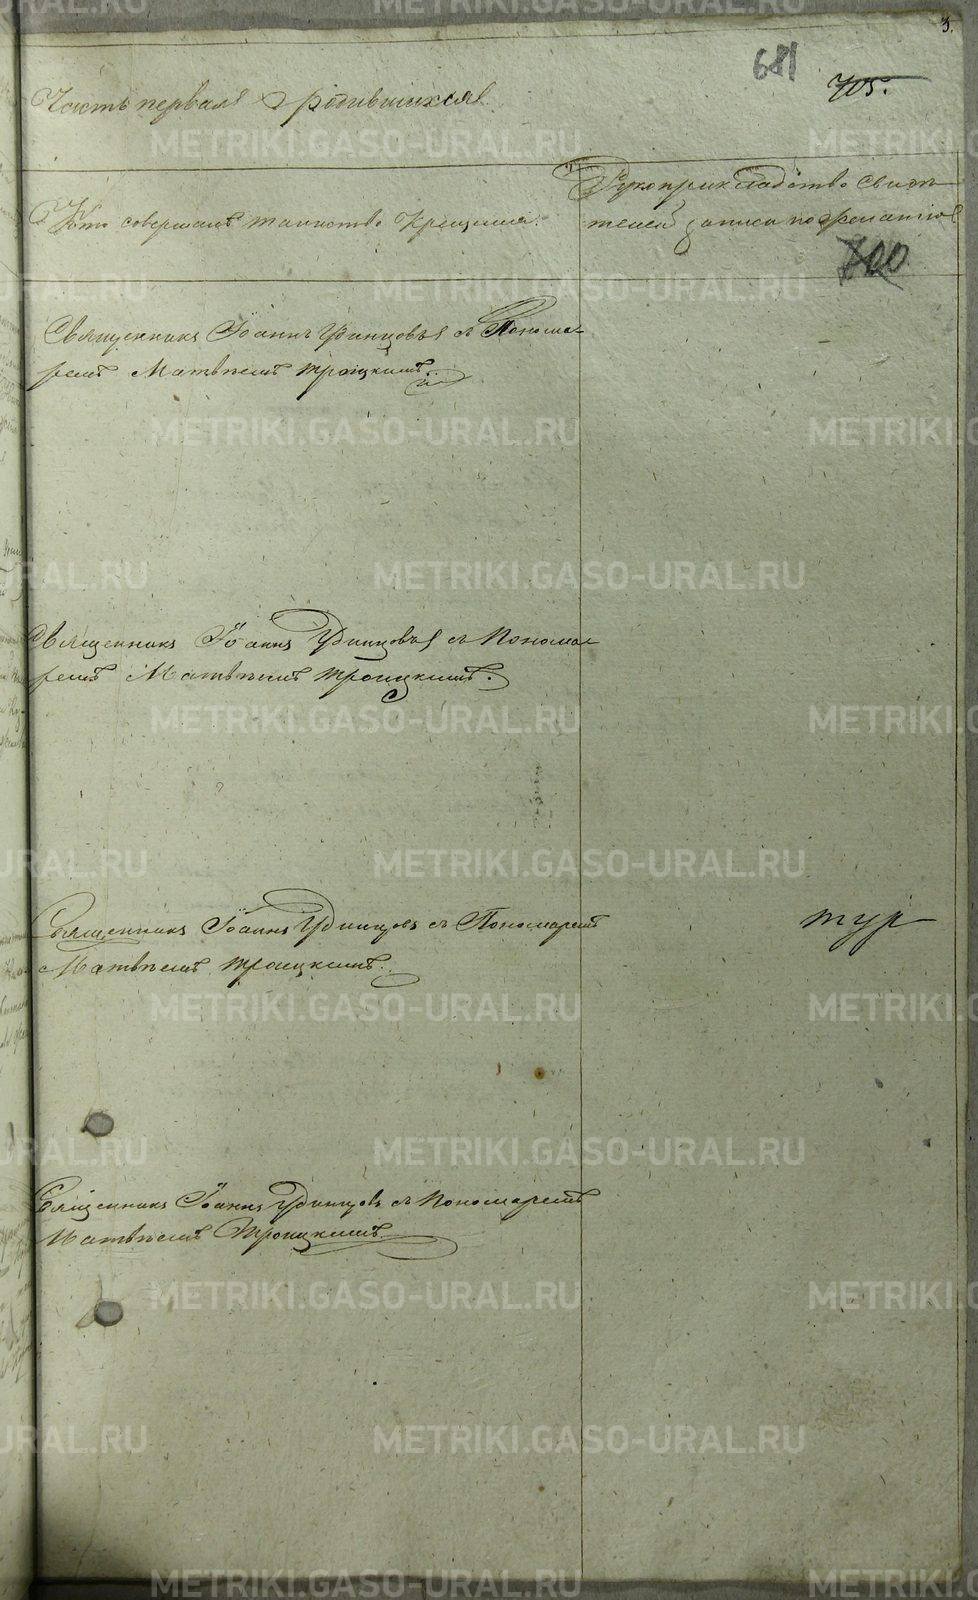 3.
681
705.
Часть первая о родившихся
Кто совершалъ таинство крещенія.
Рукоприкладство свидѣ-
телей записи по желанію
700
Священникъ Іоаннъ Удинцовъ съ Понома-
ремъ Матвѣемъ Троицкимъ.
Священникъ Іоаннъ Удинцовъ съ Понома-
ремъ Матвѣемъ Троицкимъ.
Священникъ Іоаннъ Удинцовъ съ Пономаремъ
Матвѣемъ Троицкимъ.
тур
Священникъ Іоаннъ Удинцовъ съ Пономаремъ
Матвѣемъ Троицкимъ.
METRIKI.GASO-URAL.RU